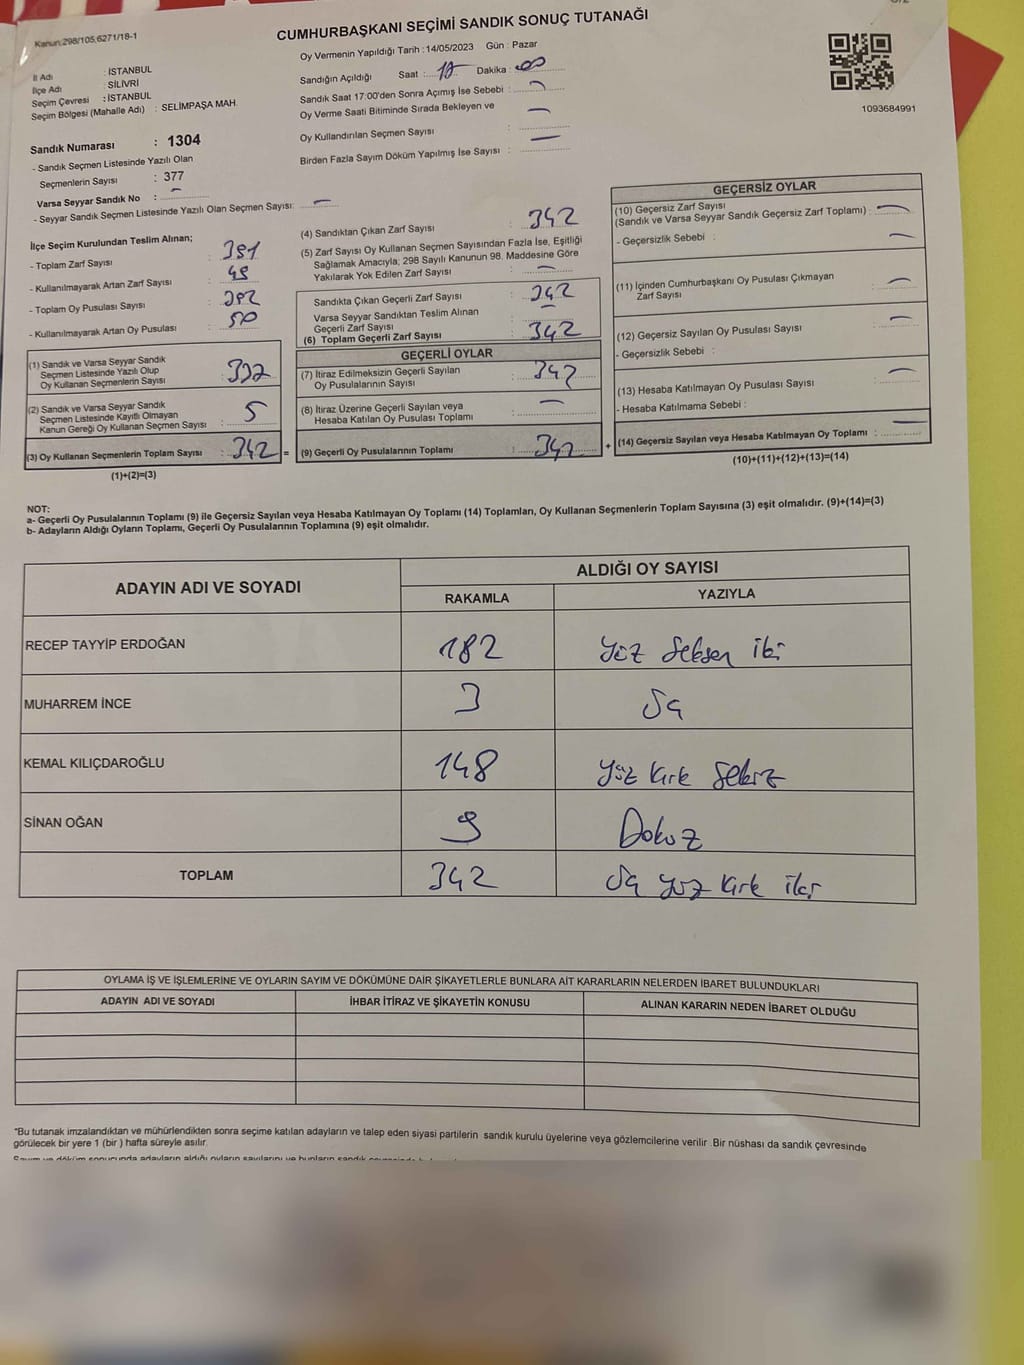 Kanun:298/105;6271/18-1
CUMHURBAŞKANI SEÇİMİ SANDIK SONUÇ TUTANAĞI
İl Adı : İSTANBUL
İlçe Adı : SİLİVRİ
Seçim Çevresi : İSTANBUL
Seçim Bölgesi (Mahalle Adı) : SELİMPAŞA MAH.
Sandık Numarası : 1304
- Sandık Seçmen Listesinde Yazılı Olan
Seçmenlerin Sayısı : 377
Varsa Seyyar Sandık No : -
- Seyyar Sandık Seçmen Listesinde Yazılı Olan Seçmen Sayısı: -
Oy Vermenin Yapıldığı Tarih : 14/05/2023 Gün : Pazar
Sandığın Açıldığı Saat : Dakika :
Sandık Saat 17:00'den Sonra Açımış İse Sebebi : -
Oy Verme Saati Bitiminde Sırada Bekleyen ve
Oy Kullandırılan Seçmen Sayısı : -
Birden Fazla Sayım Döküm Yapılmış İse Sayısı : -
1093684991
İlçe Seçim Kurulundan Teslim Alınan;
- Toplam Zarf Sayısı : 391
- Kullanılmayarak Artan Zarf Sayısı : 49
- Toplam Oy Pusulası Sayısı :
- Kullanılmayarak Artan Oy Pusulası : 50
(1) Sandık ve Varsa Seyyar Sandık
Seçmen Listesinde Yazılı Olup
Oy Kullanan Seçmenlerin Sayısı :
(2) Sandık ve Varsa Seyyar Sandık
Seçmen Listesinde Kayıtlı Olmayan
Kanun Gereği Oy Kullanan Seçmen Sayısı : 5
(3) Oy Kullanan Seçmenlerin Toplam Sayısı : 342 =
(1)+(2)=(3)
(4) Sandıktan Çıkan Zarf Sayısı : 342
(5) Zarf Sayısı Oy Kullanan Seçmen Sayısından Fazla İse, Eşitliği
Sağlamak Amacıyla; 298 Sayılı Kanunun 98. Maddesine Göre
Yakılarak Yok Edilen Zarf Sayısı : -
Sandıkta Çıkan Geçerli Zarf Sayısı : 342
Varsa Seyyar Sandıktan Teslim Alınan
Geçerli Zarf Sayısı : -
(6) Toplam Geçerli Zarf Sayısı : 342
GEÇERLİ OYLAR
(7) İtiraz Edilmeksizin Geçerli Sayılan
Oy Pusulalarının Sayısı : 342
(8) İtiraz Üzerine Geçerli Sayılan veya
Hesaba Katılan Oy Pusulası Toplamı : -
(9) Geçerli Oy Pusulalarının Toplamı : 342 +
GEÇERSİZ OYLAR
(10) Geçersiz Zarf Sayısı
(Sandık ve Varsa Seyyar Sandık Geçersiz Zarf Toplamı) : -
- Geçersizlik Sebebi : -
(11) İçinden Cumhurbaşkanı Oy Pusulası Çıkmayan
Zarf Sayısı : -
(12) Geçersiz Sayılan Oy Pusulası Sayısı : -
- Geçersizlik Sebebi :
(13) Hesaba Katılmayan Oy Pusulası Sayısı : -
- Hesaba Katılmama Sebebi :
(14) Geçersiz Sayılan veya Hesaba Katılmayan Oy Toplamı : -
(10)+(11)+(12)+(13)=(14)
NOT:
a- Geçerli Oy Pusulalarının Toplamı (9) ile Geçersiz Sayılan veya Hesaba Katılmayan Oy Toplamı (14) Toplamları, Oy Kullanan Seçmenlerin Toplam Sayısına (3) eşit olmalıdır. (9)+(14)=(3)
b- Adayların Aldığı Oyların Toplamı, Geçerli Oy Pusulalarının Toplamına (9) eşit olmalıdır.
ADAYIN ADI VE SOYADI ALDIĞI OY SAYISI
RAKAMLA YAZIYLA
RECEP TAYYİP ERDOĞAN 182 Yüz Seksen iki
MUHARREM İNCE 3 Üç
KEMAL KILIÇDAROĞLU 148 Yüz Kırk Sekiz
SİNAN OĞAN 9 Dokuz
TOPLAM 342 Üç yüz Kırk iki
OYLAMA İŞ VE İŞLEMLERİNE VE OYLARIN SAYIM VE DÖKÜMÜNE DAİR ŞİKAYETLERLE BUNLARA AİT KARARLARIN NELERDEN İBARET BULUNDUKLARI
ADAYIN ADI VE SOYADI İHBAR İTİRAZ VE ŞİKAYETİN KONUSU ALINAN KARARIN NEDEN İBARET OLDUĞU
"Bu tutanak imzalandıktan ve mühürlendikten sonra seçime katılan adayların ve talep eden siyasi partilerin sandık kurulu üyelerine veya gözlemcilerine verilir .Bir nüshası da sandık çevresinde
görülecek bir yere 1 (bir ) hafta süreyle asılır.